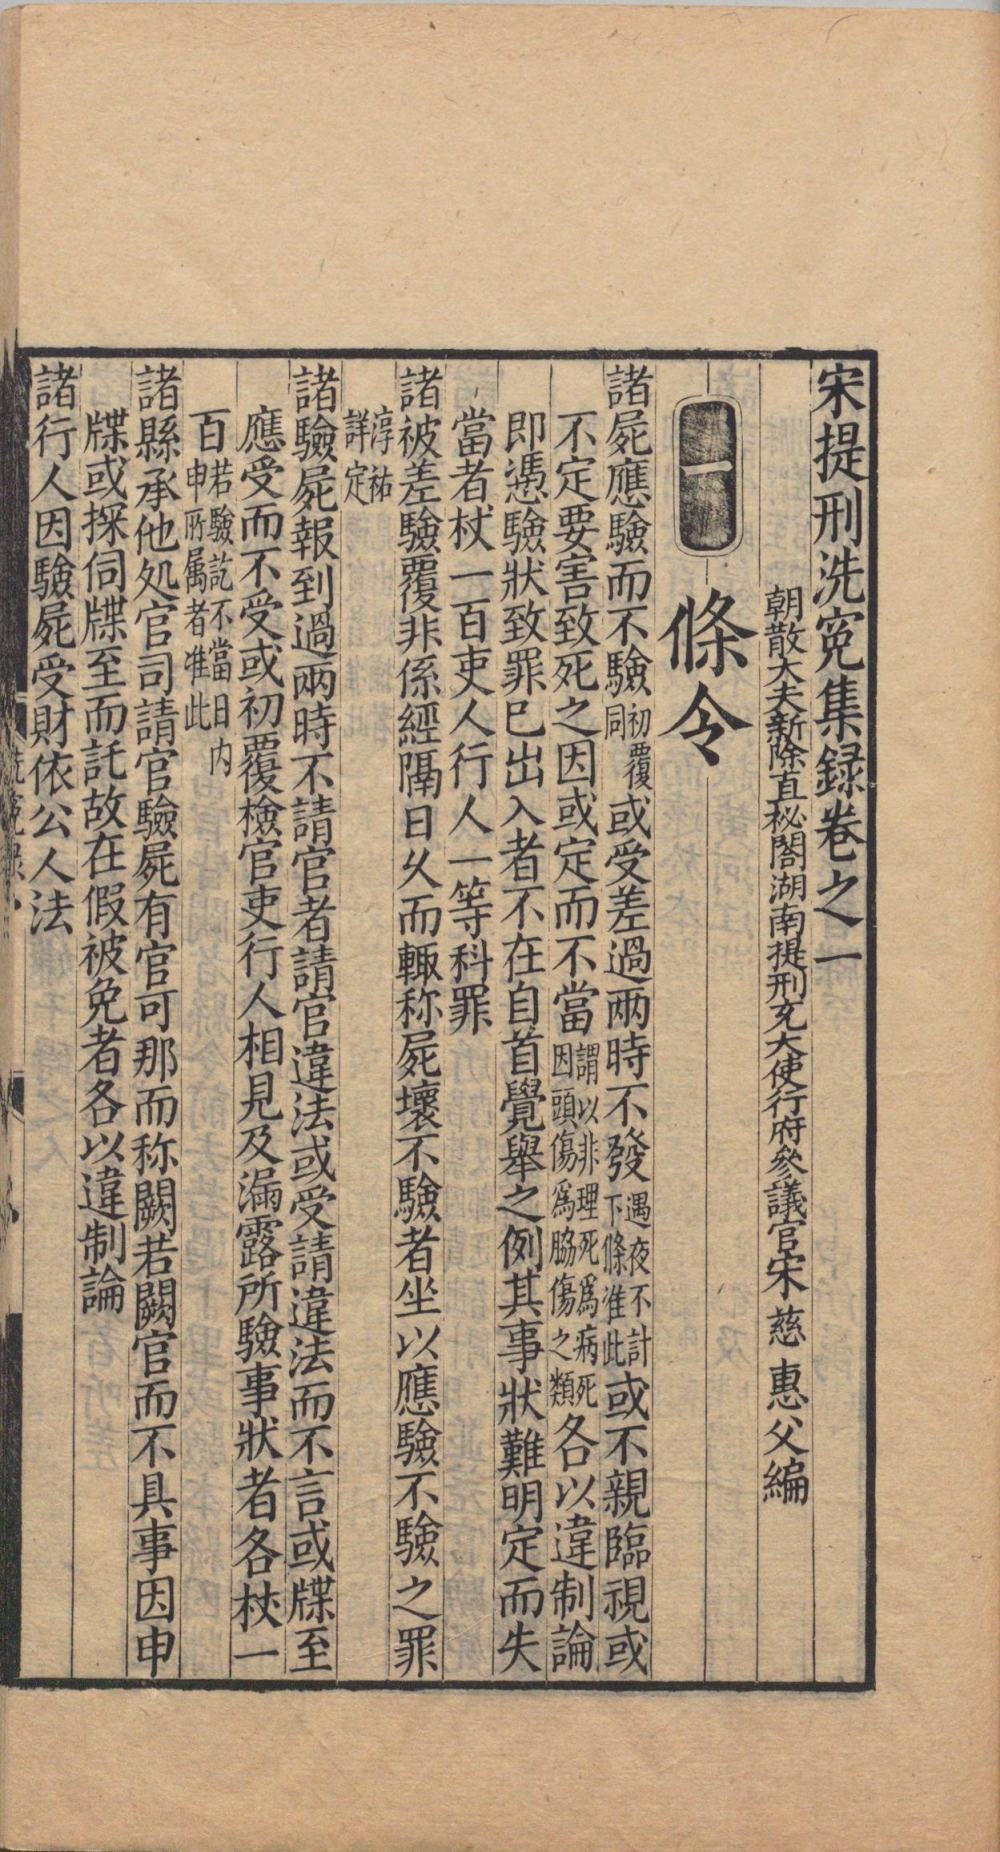 宋提刑洗冤集録卷之一
朝散大夫新除直秘閣湖南提刑充大使行府叅議官宋慈惠父編
一 條令
諸屍應驗而不驗初覆同或受差過兩時不發遇夜不計下條准此或不親臨視或
不定要害致死之因或定而不當謂以非理死為病死因頭傷為脇傷之類各以違制論
即憑驗狀致罪已出入者不在自首覺舉之例其事狀難明定而失
當者杖一百吏人行人一等科罪
諸被差驗覆非係經隔日久而輙称屍壞不驗者坐以應驗不驗之罪
淳祐詳定
諸驗屍報到過兩時不請官者請官違法或受請違法而不言或牒至
應受而不受或初覆檢官吏行人相見及漏露所驗事狀者各杖一
百若驗訖不當日内申所属者准此
諸縣承他処官司請官驗屍有官可那而称闕若闕官而不具事因申
牒或探伺牒至而託故在假被免者各以違制論
諸行人因驗屍受財依公人法